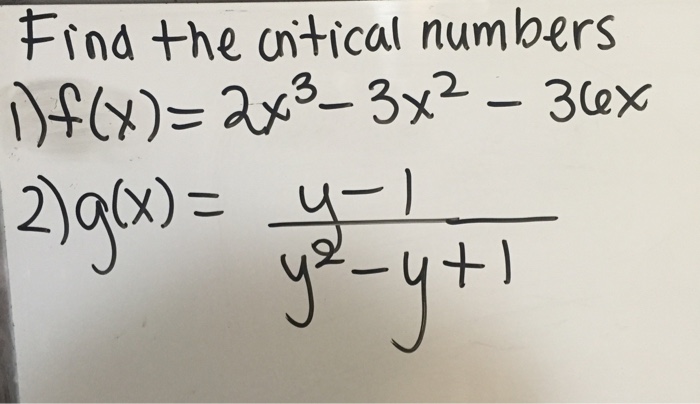 Find the critical numbers
1) f(x) = 2x³ - 3x² - 36x
2) g(x) = y-1
y² - y + 1